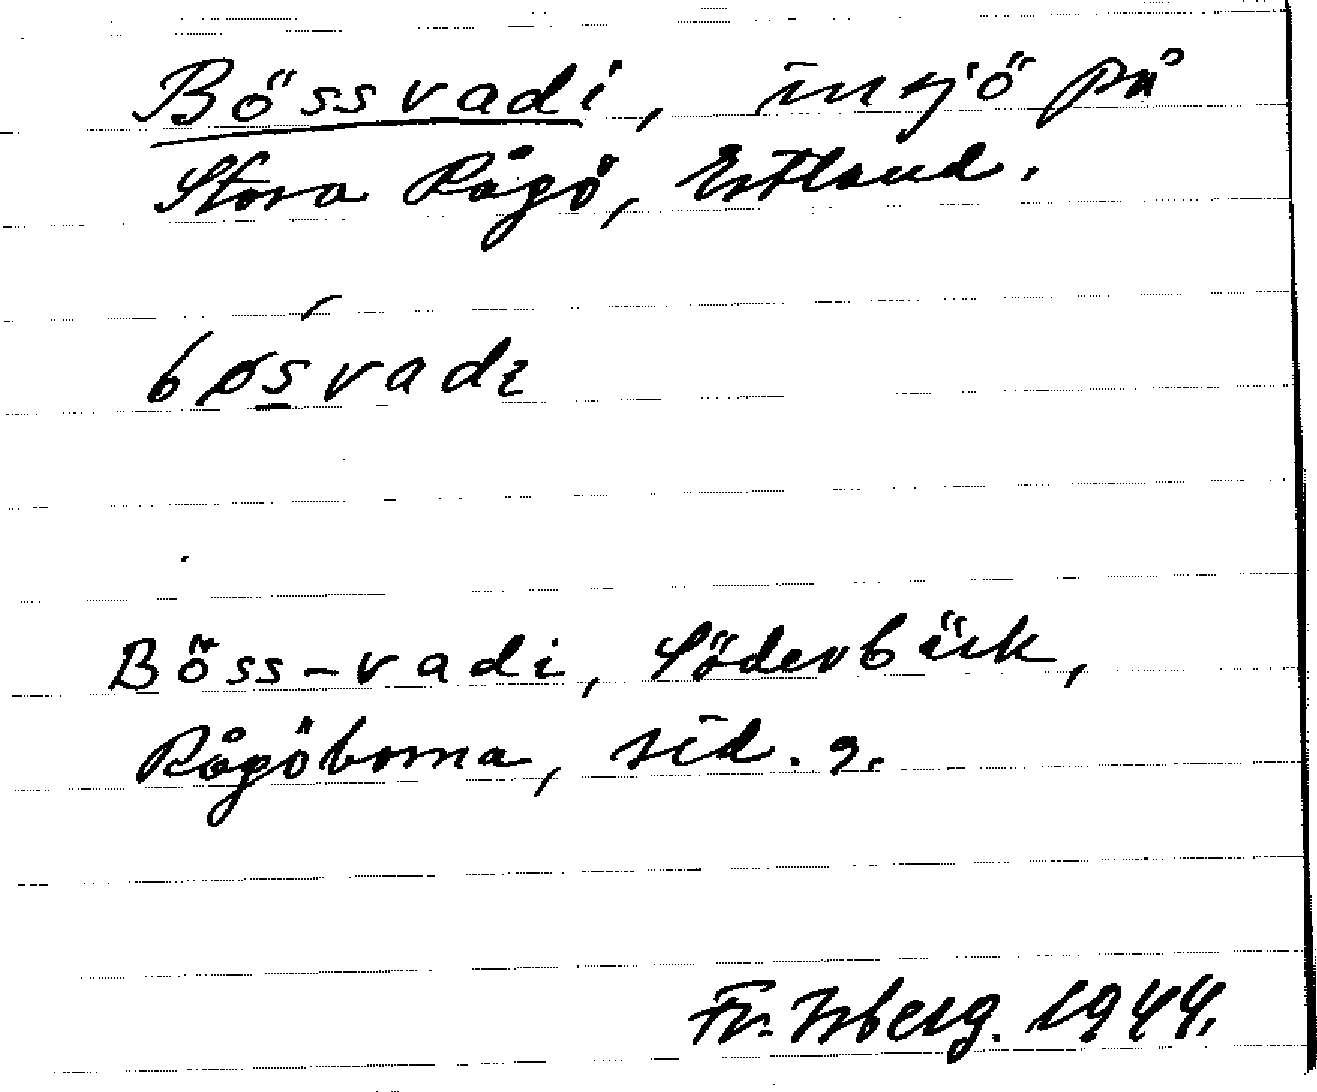 Bössvadi, insjö på
Stora Rågö, Estland.
bøs̲vadɩ
Böss-vadi, Söderbäck,
Rågöborna, sid. 9.
Fr. Isberg. 1944.